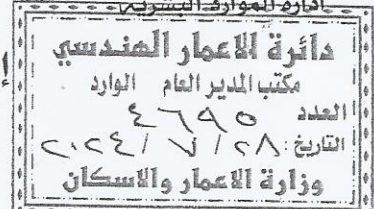 إدارة الموارد البشرية
دائرة الاعمار الهندسي
مكتب المدير العام الوارد
العدد ٤٦٩٥
التاريخ: ٢٨ / ٧ / ٢٠٢٤
وزارة الاعمار والاسكان